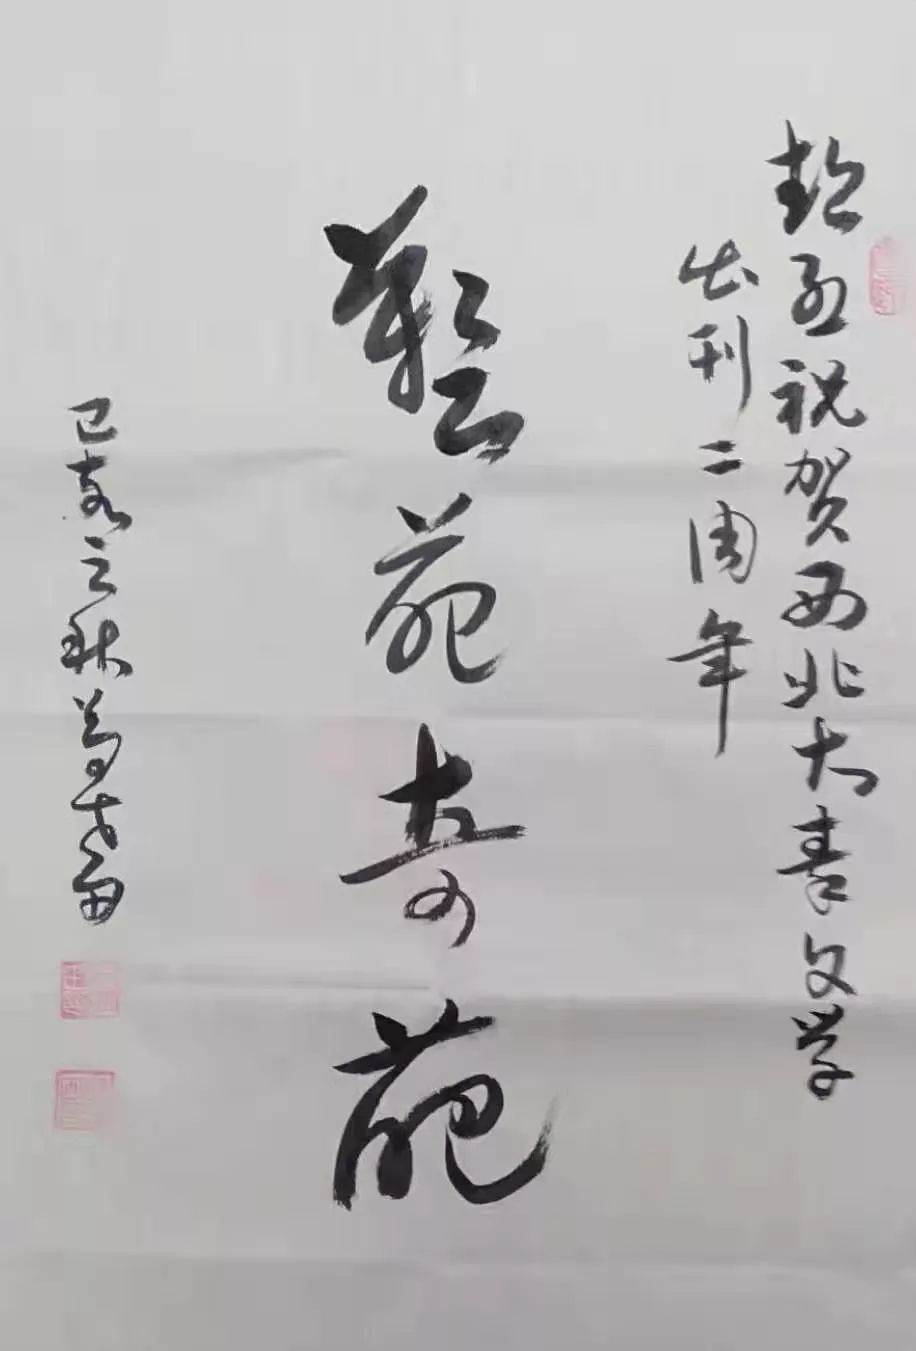 热烈祝贺西北大青文学
出刊二周年
艺苑奇葩
己亥之秋